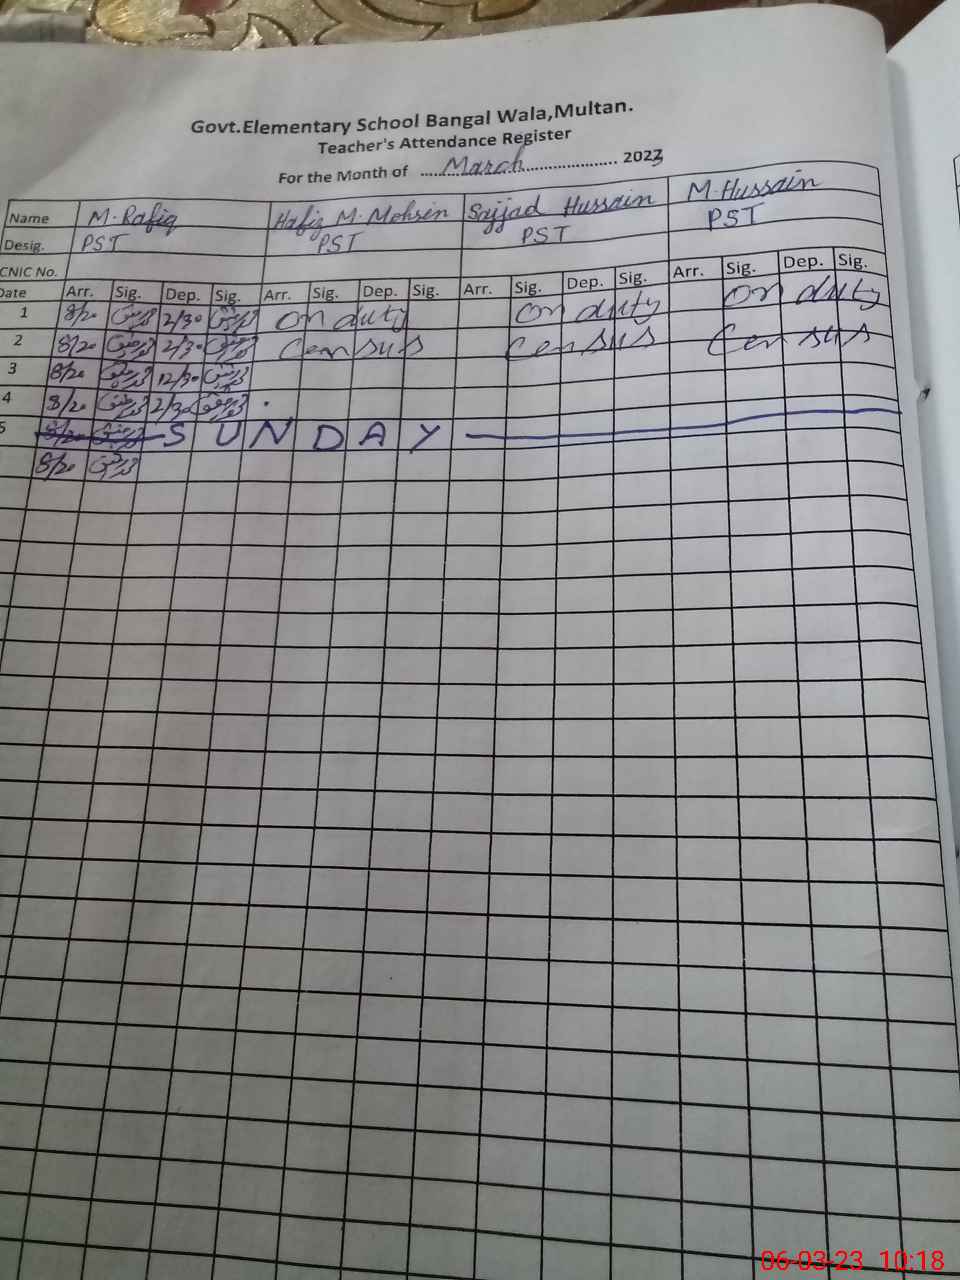 Govt.Elementary School Bangal Wala,Multan.
Teacher's Attendance Register
For the Month of March 2023
Name M. Rafiq Hafiz M. Mohsin Sajjad Hussain M. Hussain
Desig. PST PST PST PST
CNIC No.
Date Arr. Sig. Dep. Sig. Arr. Sig. Dep. Sig. Arr. Sig. Dep. Sig. Arr. Sig. Dep. Sig.
1 8/20 2/30 On duty On duty On duty
2 8/20 2/30 Census Census Census
3 8/20 12/30
4 8/20 2/30
5 8/20 SUNDAY
8/20
06-03-23 10:18